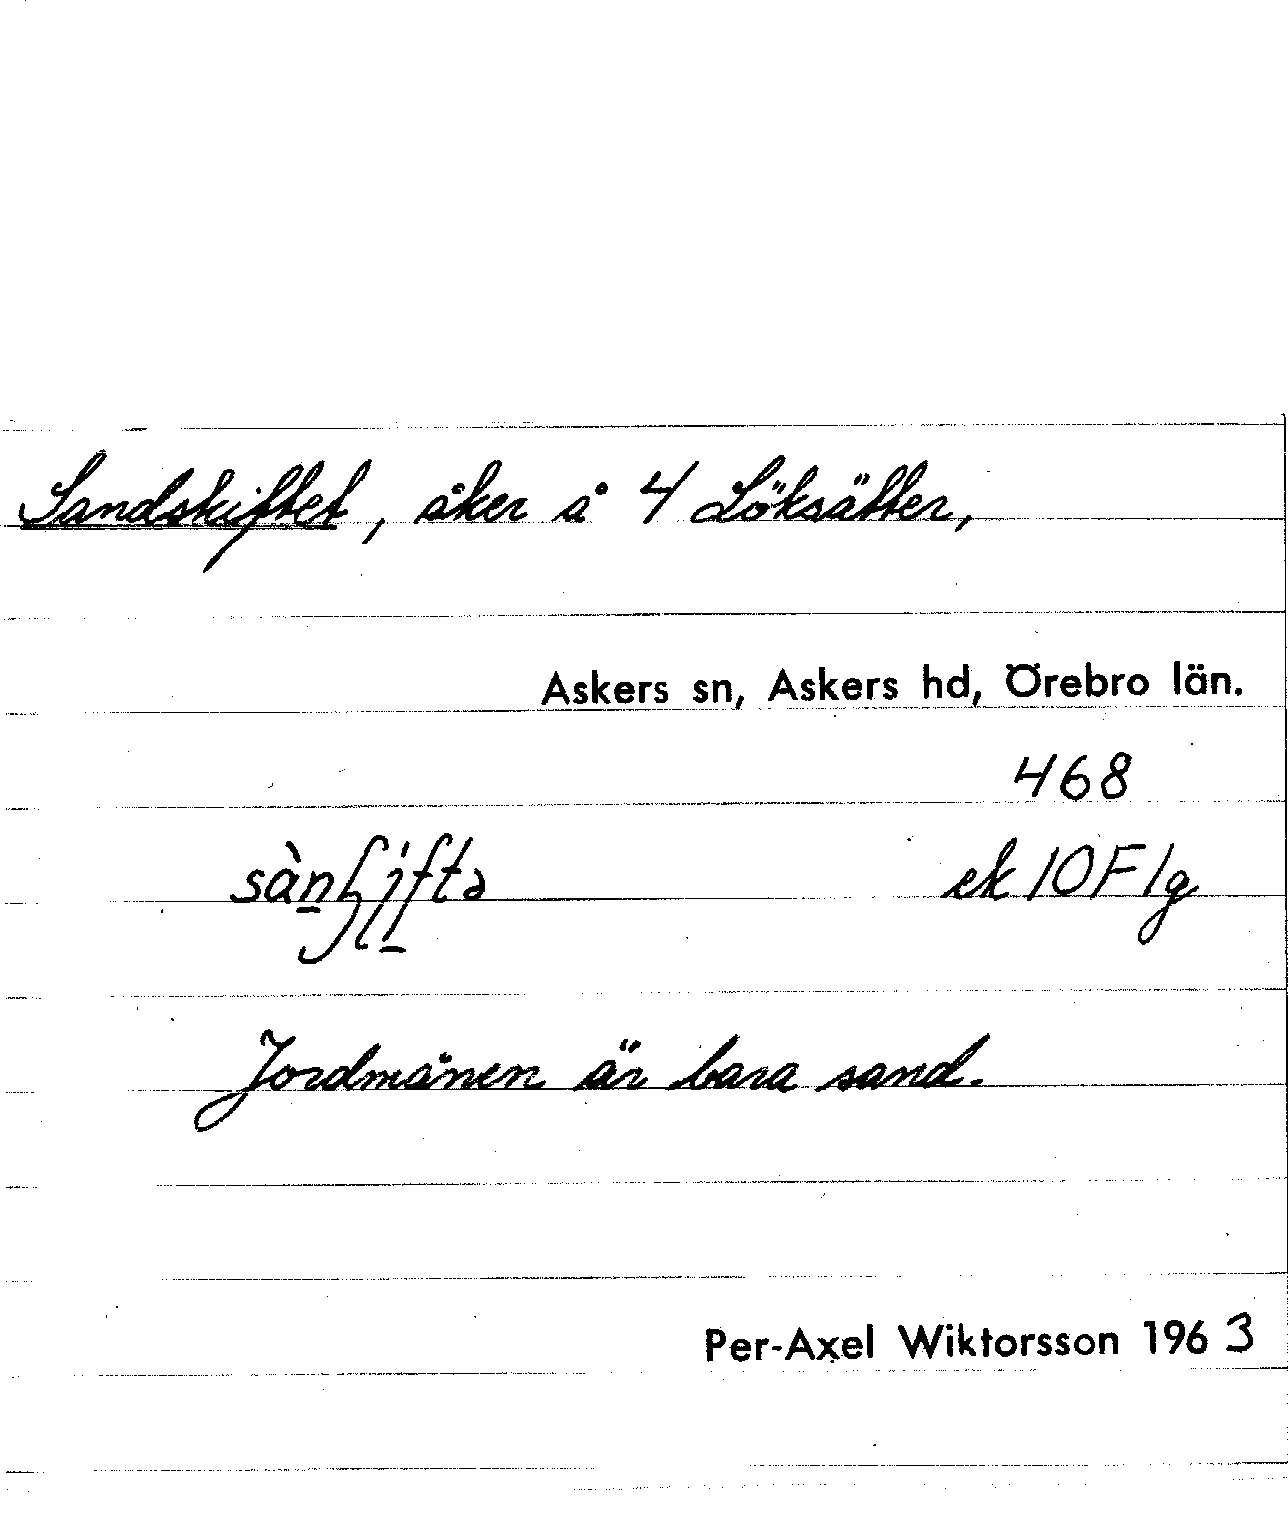 Sandskiftet, åker å 4 Löksätter,
Askers sn, Askers hd, Örebro län.
468
ek 10F1g
Jordmånen är bara sand.
Per-Axel Wiktorsson 1963